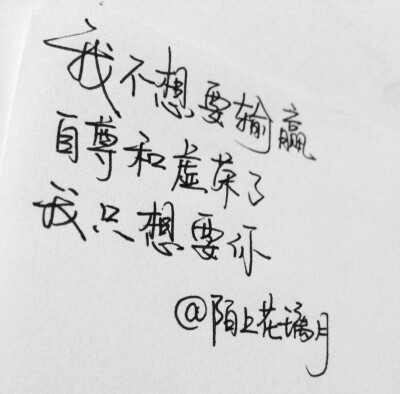 我不想要输赢
自尊和虚荣了
我只想要你
@陌上花璃月